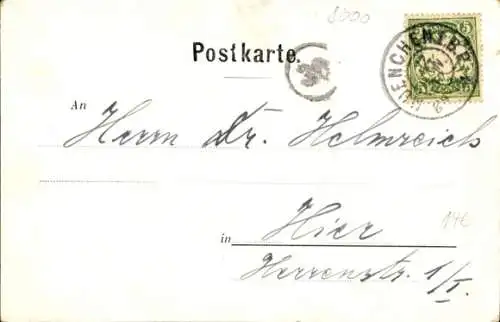 8000
Postkarte.
MUENCHEN I B.P.
5
An
Herrn Dr. Helmreich
14€
in Hier
Herrenstr. 1/I.